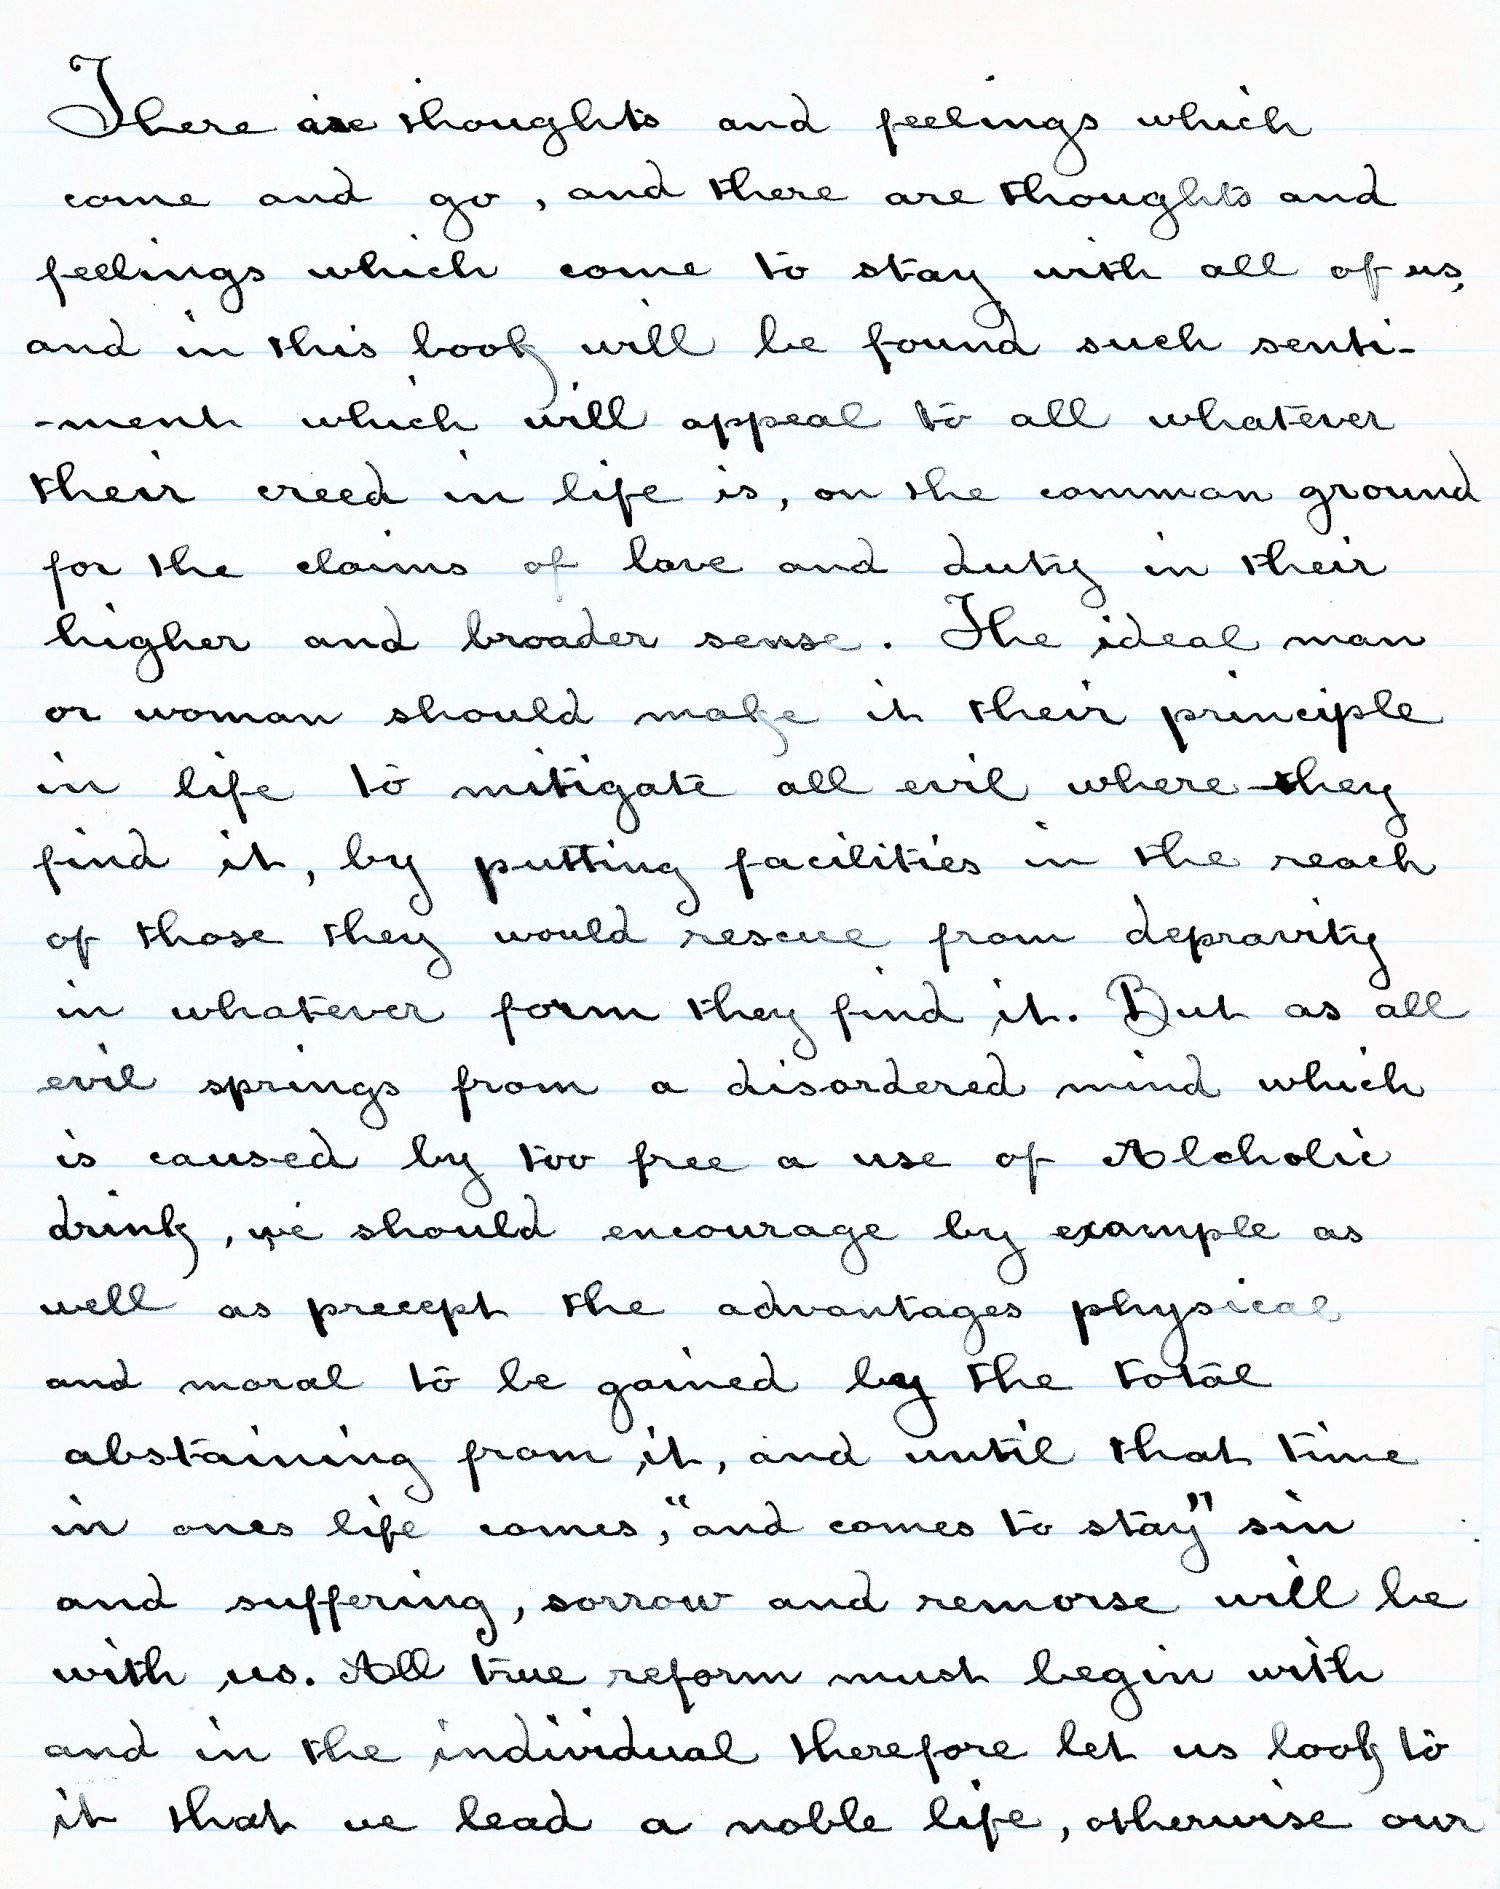 There are thoughts and feelings which
come and go, and there are thoughts and
feelings which come to stay with all of us,
and in this book will be found such senti-
-ment which will appeal to all whatever
their creed in life is, on the common ground
for the claims of love and duty in their
higher and broader sense. The ideal man
or woman should make it their principle
in life to mitigate all evil where they
find it, by putting facilities in the reach
of those they would rescue from depravity
in whatever form they find it. But as all
evil springs from a disordered mind which
is caused by too free a use of Alcholic
drink, we should encourage by example as
well as precept the advantages physical
and moral to be gained by the total
abstaining from it, and until that time
in ones life comes, "and comes to stay" sin
and suffering, sorrow and remorse will be
with us. All true reform must begin with
and in the individual therefore let us look to
it that we lead a noble life, otherwise our